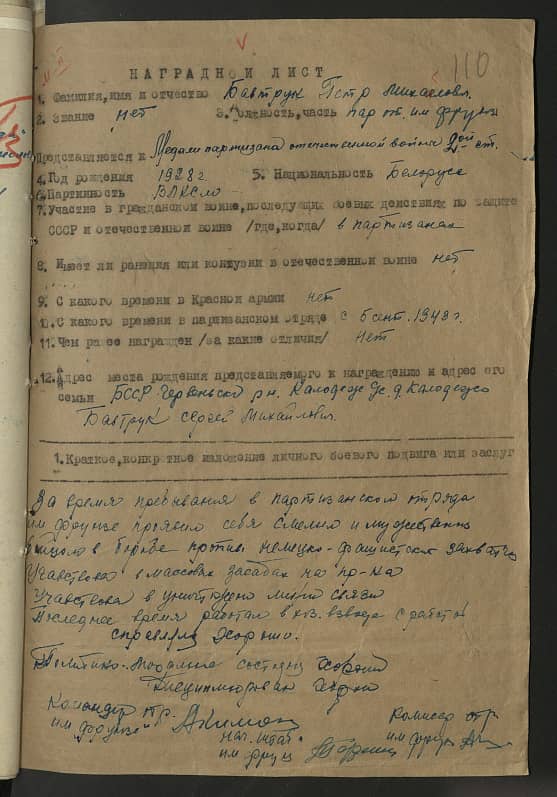 110
НАГРАДНОЙ ЛИСТ
1. Фамилия, имя и отчество Бавтрук Петр Михайлов.
2. Звание нет 3. Должность, часть парт. им Фрунзе
Представляется к Медали партизана отечественной войны 2ой ст.
4. Год рождения 1928 г 5. Национальность Белорус
6. Партийность ВЛКСМ
7. Участие в гражданской войне, последующих боевых действиях по защите
СССР и отечественной войне /где, когда/ в партизанах
8. Имеет ли ранения или контузии в отечественной войне нет
9. С какого времени в Красной армии нет
10. С какого времени в партизанском отряде с 5 сент. 1943 г.
11. Чем ранее награжден /за какие отличия/ нет
12. Адрес места рождения представляемого к награждению и адрес его
семьи БССР Червеньск р-н. д. Колодежо
Бавтрук Сергей Михайлович
1. Краткое, конкретное изложение личного боевого подвига или заслуг
За время пребывания в партизанском отряде
им Фрунзе проявил себя смелым и мужественн
в борьбе против немецко-фашистских захватчи
Участвовал в массовых засадах на пр-ка
Участвовал в линии связи
Последнее время работал в хоз. взводе с работой
справлялся хорошо.
Политико-моральное состояние хорошее
Дисциплинирован
Командир отр. Комиссар отр
им "Фрунзе" нач. штаба им Фрунзе
им Фрунзе